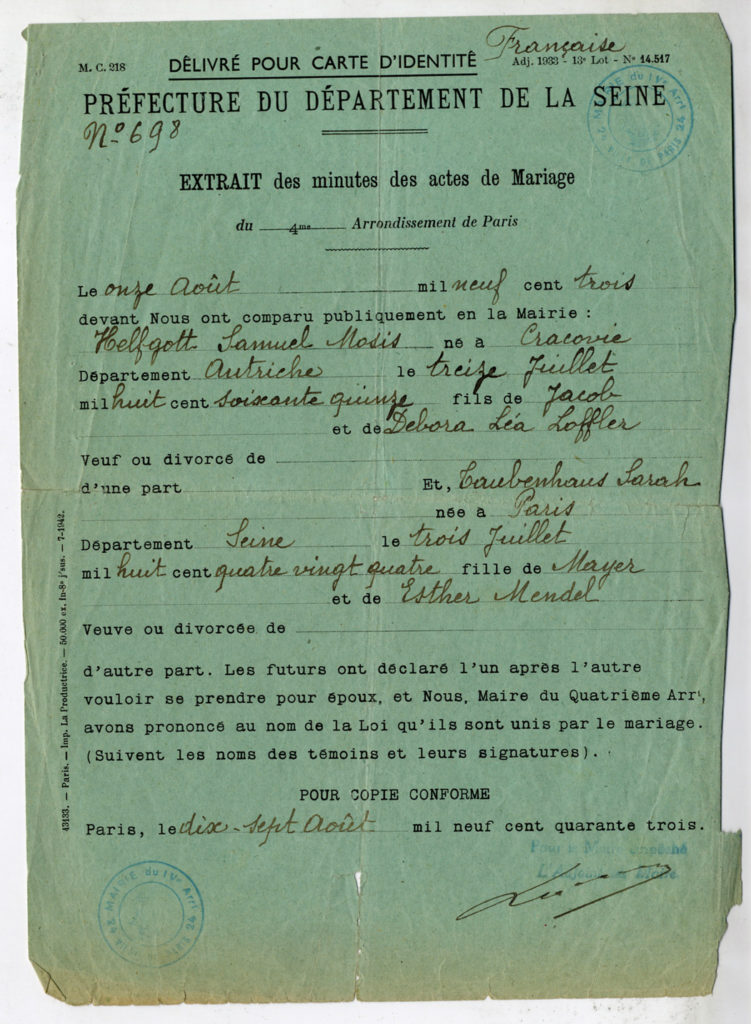 Française
M. C. 218 DÊLIVRÉ POUR CARTE D'IDENTITÊ Adj. 1933 - 13e Lot - No 14.517
PRÉFECTURE DU DÉPARTEMENT DE LA SEINE
No 698
EXTRAIT des minutes des actes de Mariage
du 4me Arrondissement de Paris
Le onze Août mil neuf cent trois
devant Nous ont comparu publiquement en la Mairie :
Helfgott Samuel Mosis né a Cracovie
Département Autriche le treize Juillet
mil huit cent soixante quinze fils de Jacob
et de Debora Léa Loffler
Veuf ou divorcé de
d'une part Et, Taubenhaus Sarah
née a Paris
Département Seine le trois Juillet
mil huit cent quatre vingt quatre fille de Mayer
et de Esther Mendel
Veuve ou divorcée de
d'autre part. Les futurs ont déclaré l'un après l'autre
vouloir se prendre pour époux, et Nous, Maire du Quatrième Arrt,
avons prononcé au nom de la Loi qu'ils sont unis par le mariage.
(Suivent les noms des témoins et leurs signatures).
POUR COPIE CONFORME
Paris, le dix-sept Août mil neuf cent quarante trois.
Pour le Maire empêché
L'Adjoint au Maire
43133. — Paris. — Imp. La Productrice. — 50.000 ex. in-8° j'sus. — 7-1942.
MAIRIE du IVe Arrt
PARIS 24
MAIRIE du IVe Arrt
PARIS 24